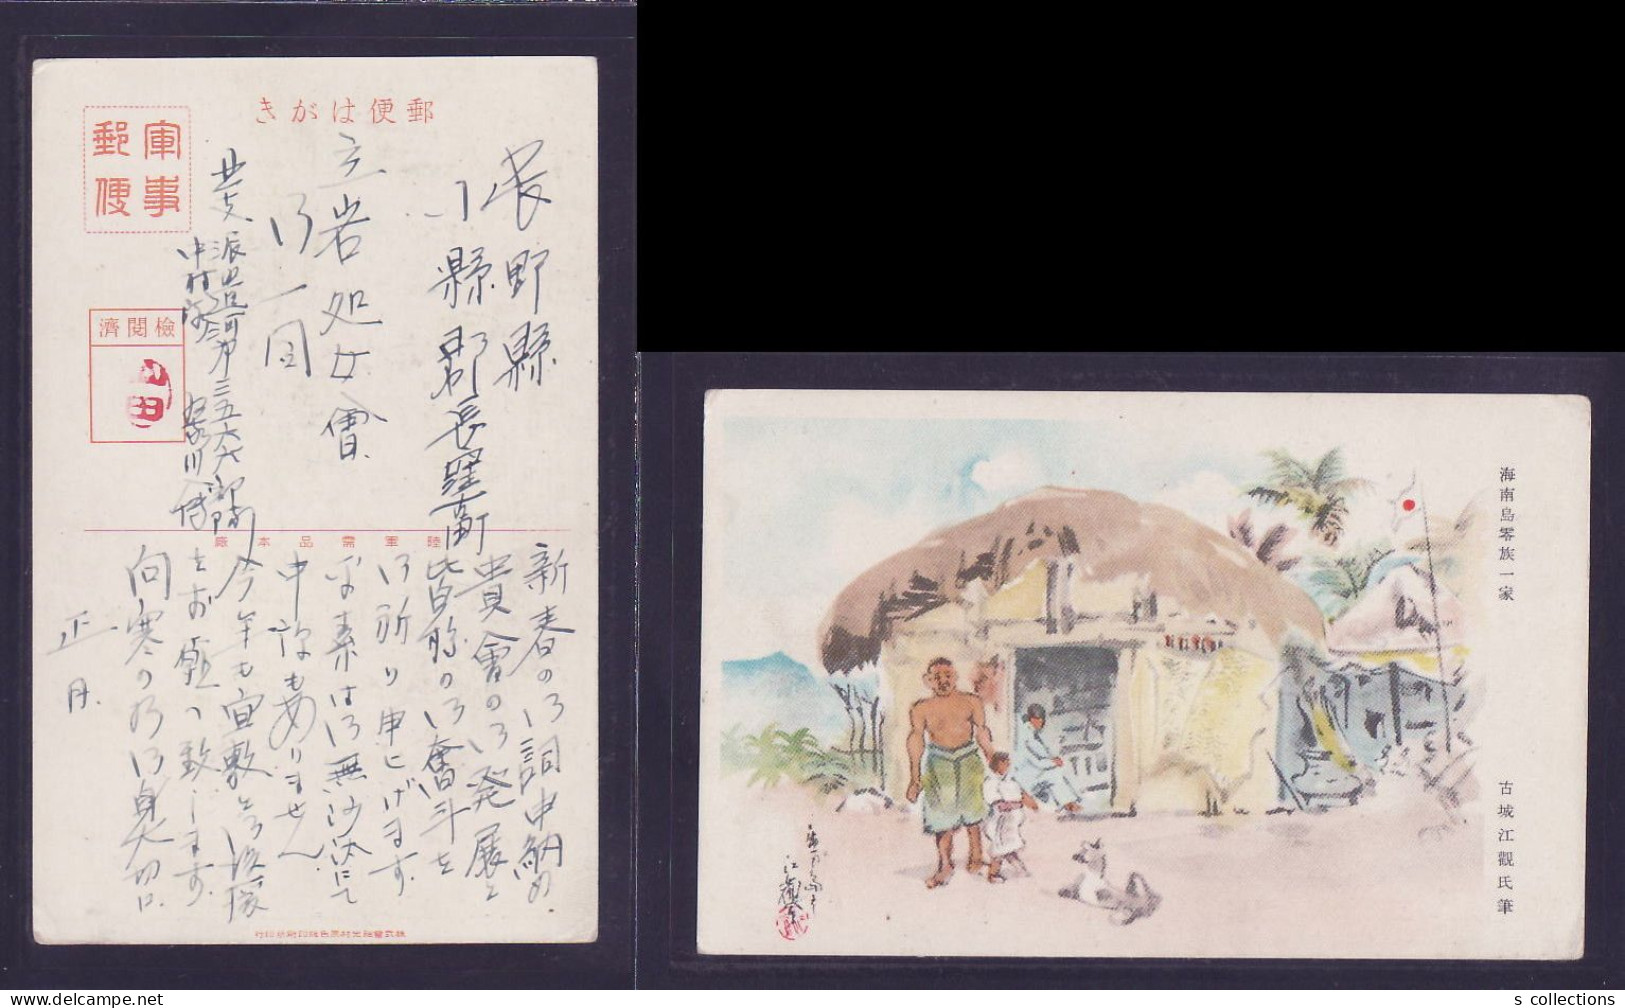 郵便はがき
軍事
郵便
檢閲濟
長野縣
小縣郡長窪
立岩処女會
御一同
北支派遣河第三五六六部隊
中村隊
陸軍需品本廠
新春の御詞申納め
貴會の御発展と
皆形の御奮斗を
御祈り申上げます
平素は御無沙汰にて
申訳もありません
今年も宜敷く御後援
をお願い致します
向寒の折御身大切に
正月
海南島零族一家
古城江觀氏筆
江觀
s collections